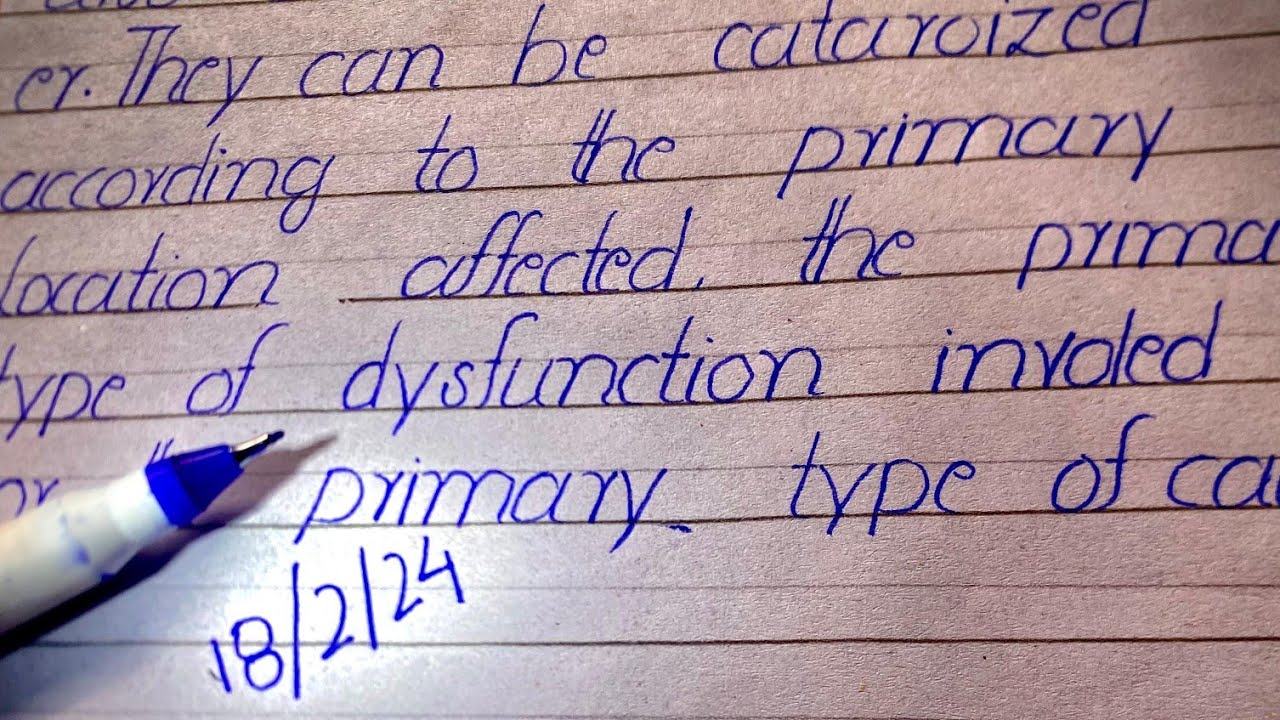 er. They can be cataroized
according to the primary
location affected. the prima
type of dysfunction involed
primary type of ca
18/2/24